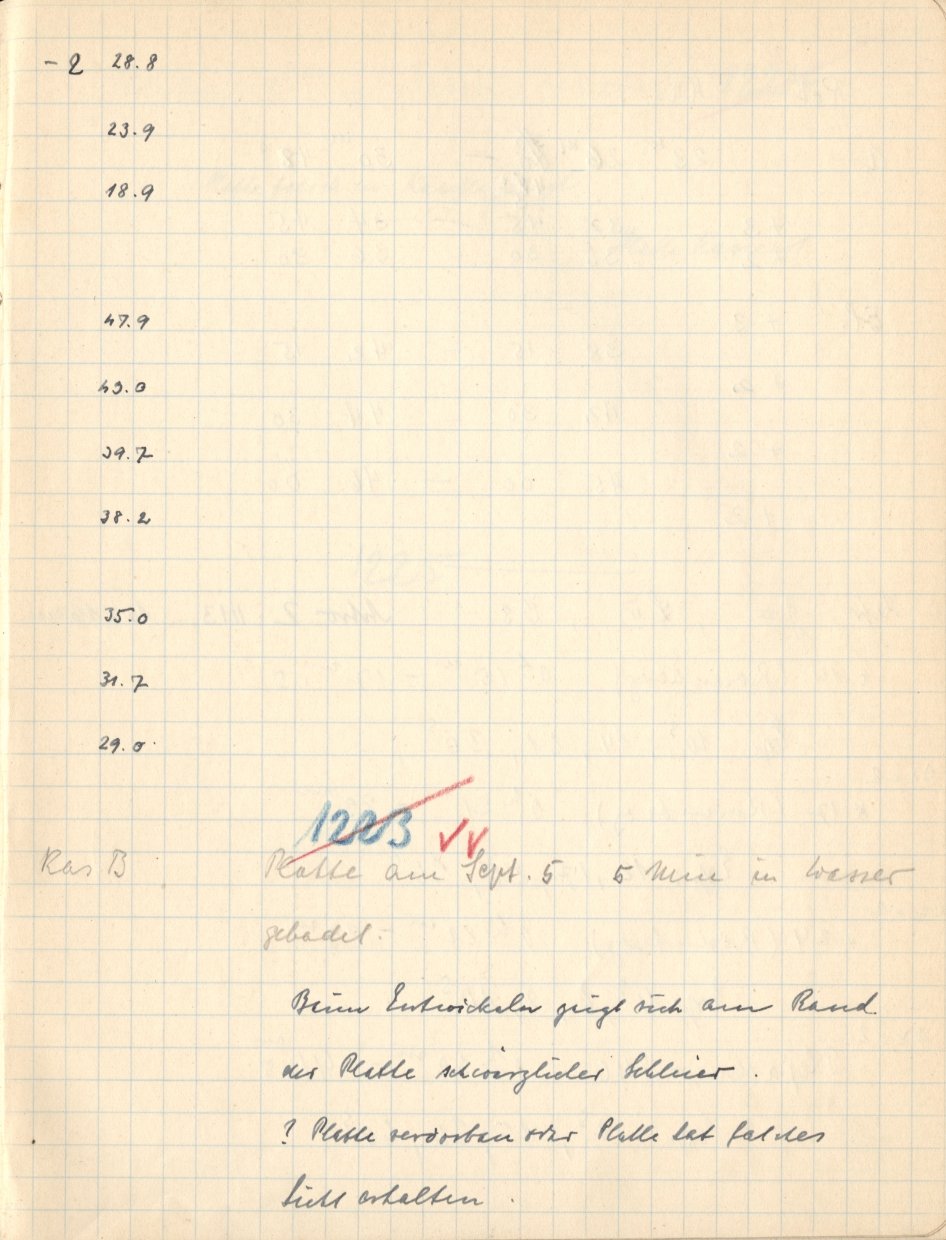 - 2 28.8
23.9
18.9
47.9
43.0
39.7
38.2
35.0
31.7
29.0
1223 ✓✓
Kas B Platte am Sept. 5 5 Min in Wasser
gebadet.
Beim Entwickeln zeigt sich am Rand
der Platte schwärzlicher Schleier.
? Platte verdorben oder Platte hat falsches
Licht erhalten.